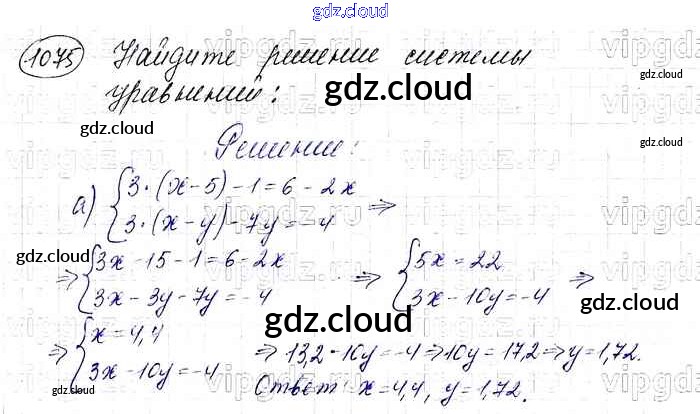 gdz.cloud
1075 Найдите решение системы
уравнений:
gdz.cloud
gdz.cloud
gdz.cloud
Решение:
gdz.cloud
а) { 3·(x-5)-1=6-2x
3·(x-y)-7y=-4 ⇒
⇒ { 3x-15-1=6-2x
3x-3y-7y=-4 ⇒ { 5x=22
3x-10y=-4 ⇒
gdz.cloud
gdz.cloud
gdz.cloud
⇒ { x=4,4
3x-10y=-4 ⇒ 13,2-10y=-4 ⇒ 10y=17,2 ⇒ y=1,72.
Ответ: x=4,4, y=1,72.
gdz.cloud
gdz.cloud